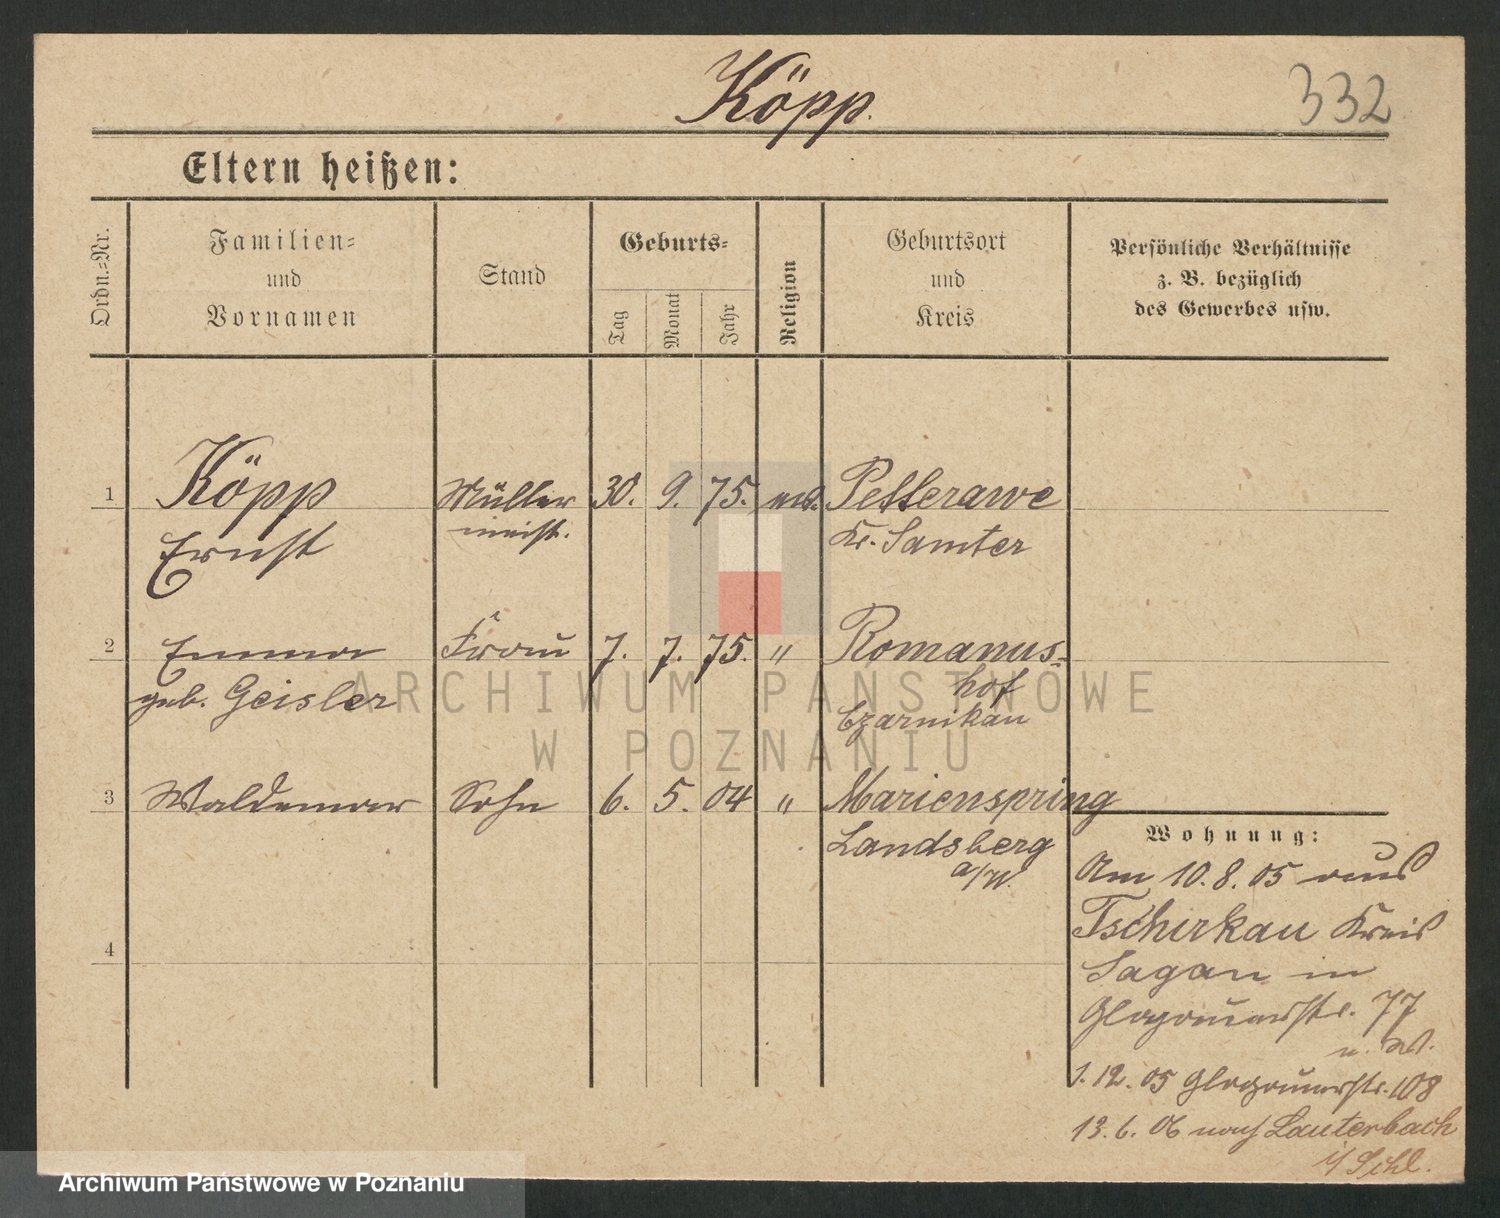 Köpp.
332
Eltern heißen:
Ordn.-Nr.
Familien-
und
Vornamen
Stand
Geburts-
Tag
Monat
Jahr
Religion
Geburtsort
und
Kreis
Persönliche Verhältnisse
z. B. bezüglich
des Gewerbes usw.
1 Köpp Müller 30. 9. 75. Petterawe
Ernst meist. Kr. Samter
2 Emma Frau 7. 7. 75. " Romanus-
geb. Geisler hof
Czarnikau
3 Waldemar Sohn 6. 5. 04 " Marienspring
Landsberg
a/W.
4
Wohnung:
Am 10.8.05 aus
Tschirkau Kreis
Sagan in
Glogauerstr. 77
1.12.05 Glogauerstr. 108
13.6.06 nach Lauterbach
i/Schl.
ARCHIWUM PAŃSTWOWE
W POZNANIU
Archiwum Państwowe w Poznaniu